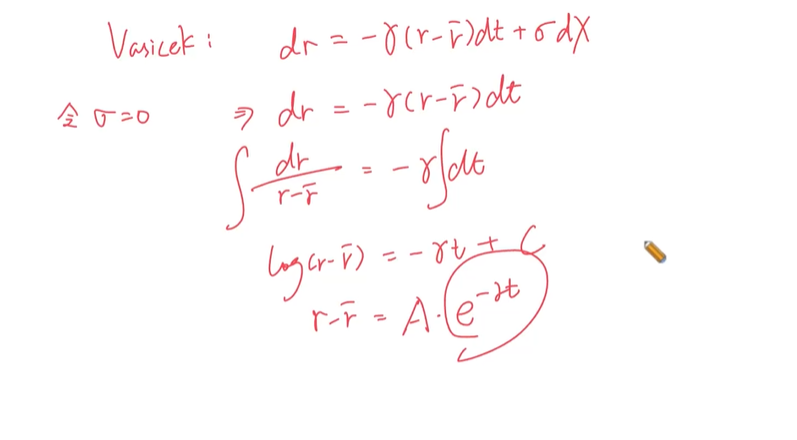 Vasicek: dr = -γ(r-r̄)dt + σdX
令 σ=0 ⇒ dr = -γ(r-r̄)dt
∫ dr/(r-r̄) = -γ∫dt
log(r-r̄) = -γt + C
r-r̄ = A·e^{-γt}